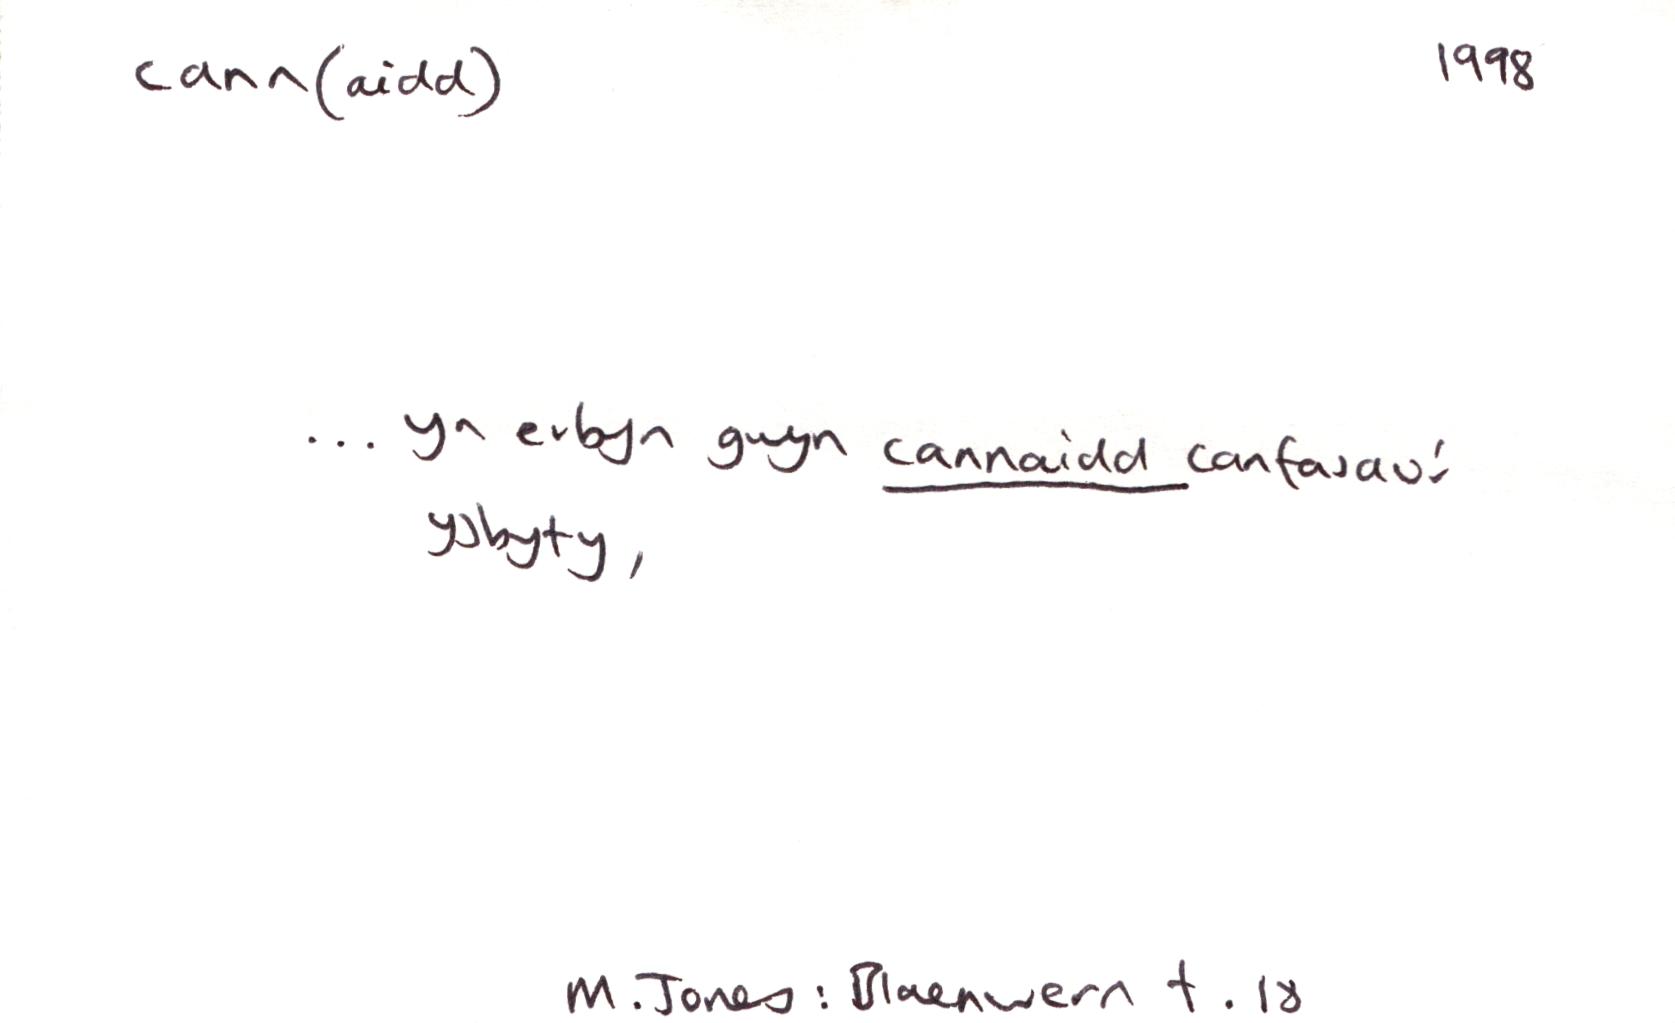 cann(aidd) 1998
... yn erbyn gwyn cannaidd canfasau'r
ysbyty,
M. Jones : Blaenwern t. 18